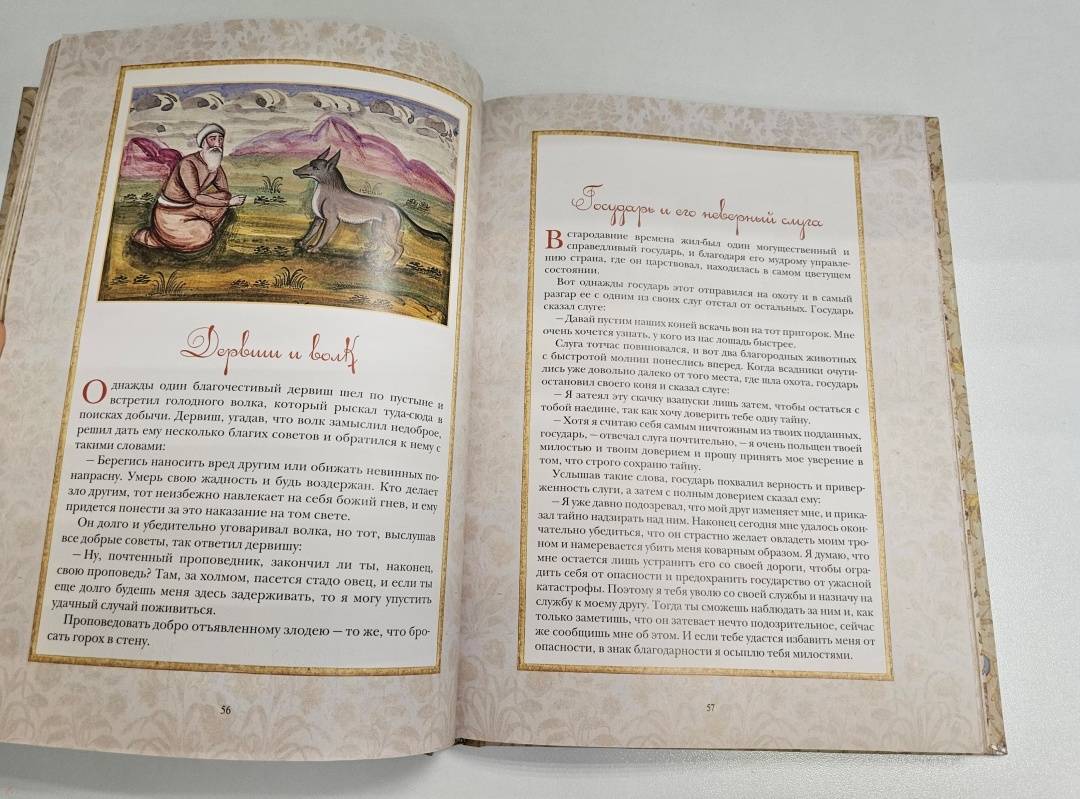 Дервиш и волк
Однажды один благочестивый дервиш шел по пустыне и
встретил голодного волка, который рыскал туда-сюда в
поисках добычи. Дервиш, угадав, что волк замыслил недоброе,
решил дать ему несколько благих советов и обратился к нему с
такими словами:
– Берегись наносить вред другим или обижать невинных по-
напрасну. Умерь свою жадность и будь воздержан. Кто делает
зло другим, тот неизбежно навлекает на себя божий гнев, и ему
придется понести за это наказание на том свете.
Он долго и убедительно уговаривал волка, но тот, выслушав
все добрые советы, так ответил дервишу:
– Ну, почтенный проповедник, закончил ли ты, наконец,
свою проповедь? Там, за холмом, пасется стадо овец, и если ты
еще долго будешь меня здесь задерживать, то я могу упустить
удачный случай поживиться.
Проповедовать добро отъявленному злодею — то же, что бро-
сать горох в стену.
56
Государь и его неверный слуга
В стародавние времена жил-был один могущественный и
справедливый государь, и благодаря его мудрому управле-
нию страна, где он царствовал, находилась в самом цветущем
состоянии.
Вот однажды государь этот отправился на охоту и в самый
разгар ее с одним из своих слуг отстал от остальных. Государь
сказал слуге:
– Давай пустим наших коней вскачь вон на тот пригорок. Мне
очень хочется узнать, у кого из нас лошадь быстрее.
Слуга тотчас повиновался, и вот два благородных животных
с быстротой молнии понеслись вперед. Когда всадники очути-
лись уже довольно далеко от того места, где шла охота, государь
остановил своего коня и сказал слуге:
– Я затеял эту скачку взапуски лишь затем, чтобы остаться с
тобой наедине, так как хочу доверить тебе одну тайну.
– Хотя я считаю себя самым ничтожным из твоих подданных,
государь, – отвечал слуга почтительно, – я очень польщен твоей
милостью и твоим доверием и прошу принять мое уверение в
том, что строго сохраню тайну.
Услышав такие слова, государь похвалил верность и привер-
женность слуги, а затем с полным доверием сказал ему:
– Я уже давно подозревал, что мой друг изменяет мне, и прика-
зал тайно надзирать над ним. Наконец сегодня мне удалось окон-
чательно убедиться, что он страстно желает овладеть моим тро-
ном и намеревается убить меня коварным образом. Я думаю, что
мне остается лишь устранить его со своей дороги, чтобы огра-
дить себя от опасности и предохранить государство от ужасной
катастрофы. Поэтому я тебя уволю со своей службы и назначу на
службу к моему другу. Тогда ты сможешь наблюдать за ним и, как
только заметишь, что он затевает нечто подозрительное, сейчас
же сообщишь мне об этом. И если тебе удастся избавить меня от
опасности, в знак благодарности я осыплю тебя милостями.
57